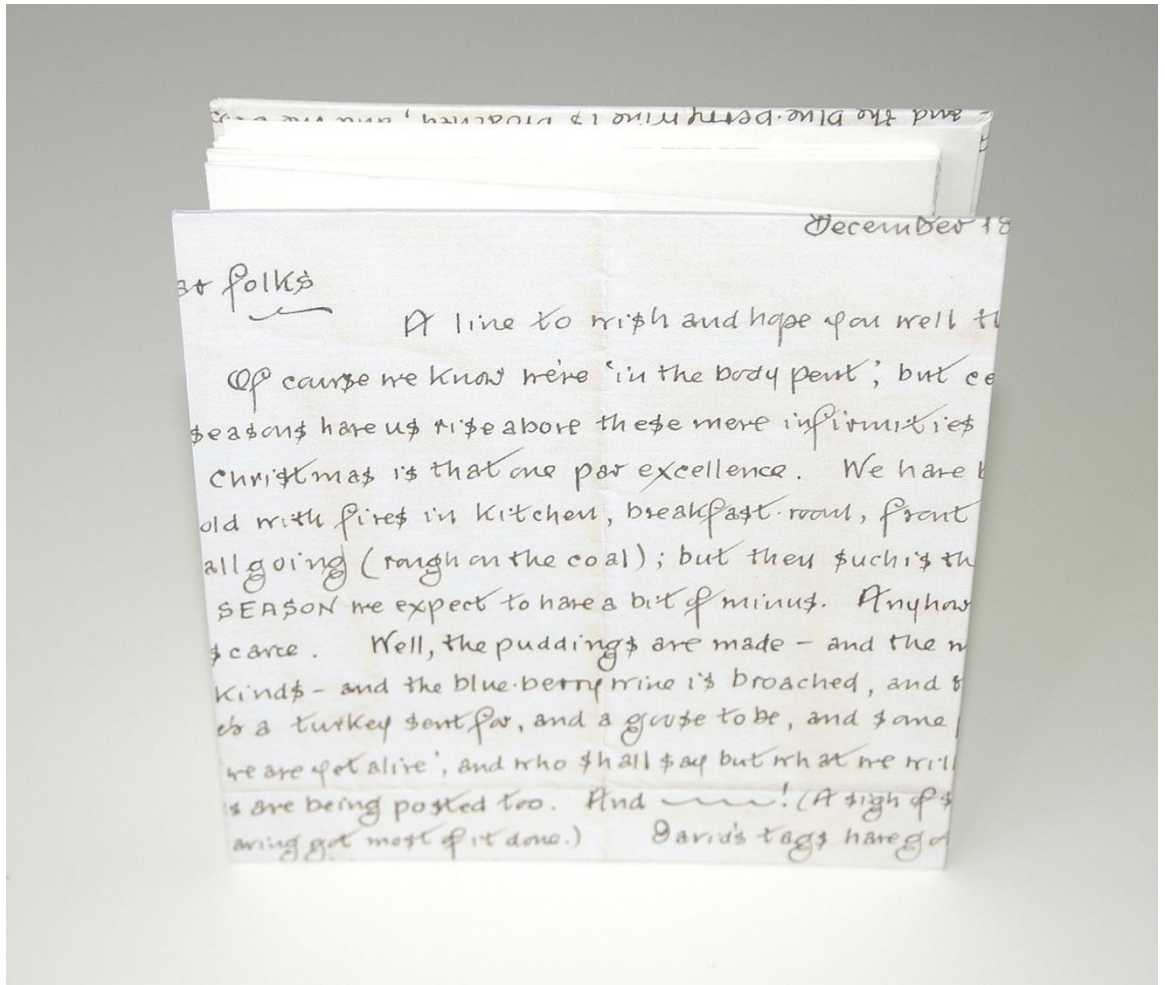 and the blue-berry wine is broached, and the
December 18
ar folks
A line to wish and hope you well th
Of course we know we're 'in the body pent', but ce
seasons have us rise above these mere infirmities
Christmas is that one par excellence. We have b
old with fires in kitchen, breakfast-room, front
all going (rough on the coal); but then such is th
SEASON we expect to have a bit of minus. Anyhow
scarce. Well, the puddings are made - and the m
kinds - and the blue-berry wine is broached, and
a turkey sent for, and a goose to be, and some
'we are yet alive', and who shall say but what we will
s are being posted too. And ! (A sigh of s
aving got most of it done.) David's tags have go